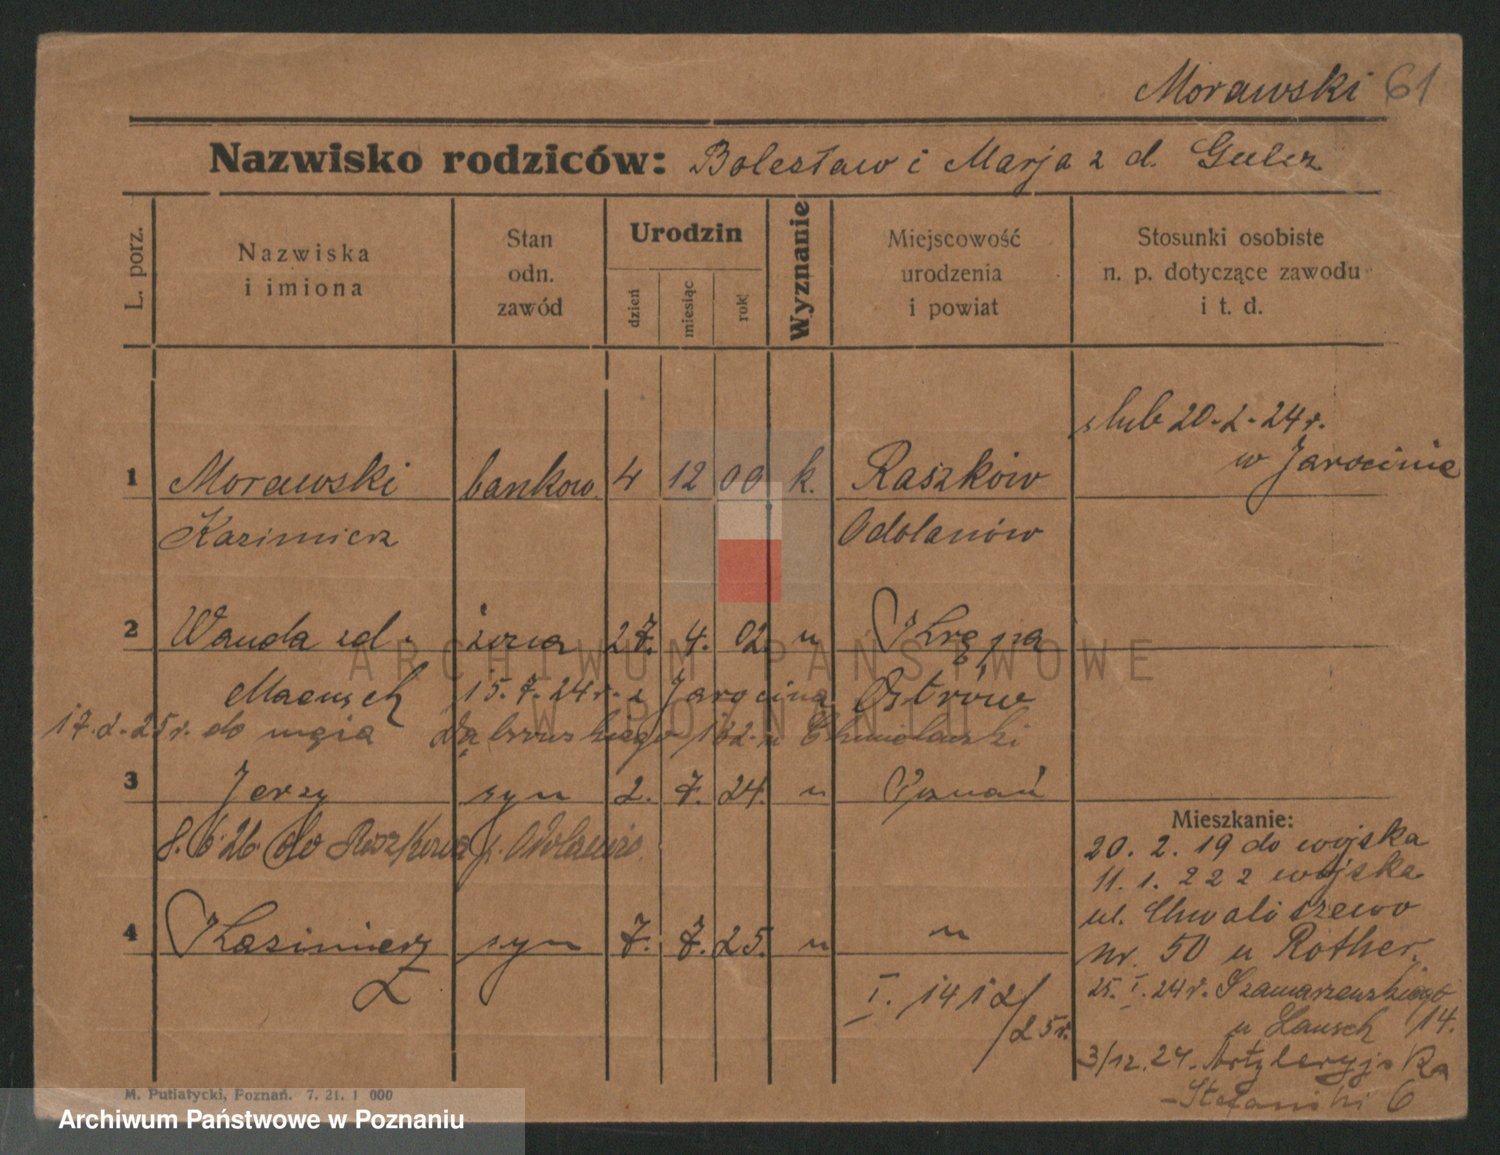 Morawski 61
Nazwisko rodziców: Bolesław i Marja z d. Gulcz
L. porz.
Nazwiska
i imiona
Stan
odn.
zawód
Urodzin
dzień
miesiąc
rok
Wyznanie
Miejscowość
urodzenia
i powiat
Stosunki osobiste
n. p. dotyczące zawodu
i t. d.
ślub 20-2-24r.
w Jarocinie
1 Morawski bankow. 4 12 00 k. Raszków
Kazimierz Odolanów
2 Wanda z d. żona 27. 4. 02. " Krępa
15.7.24r. z Jarocina Ostrów
17.2.25r. do męża Dąbrowskiego 162 u
3 Jerzy syn 2. 7. 24. " Poznań
8.6.26. do Raszkowa p. Odolanów
4 Kazimierz syn 7. 7. 25. " "
I. 1412/
/25r.
Mieszkanie:
20. 2. 19 do wojska
11. 1. 22 z wojska
ul. Chwaliszewo
nr. 50 u Rother.
25. I. 24r. Szamarzewskiego
14.
3/12. 24. Artyleryjska
6
M. Putiatycki, Poznań. 7. 21. 1 000
ARCHIWUM PAŃSTWOWE
W POZNANIU
Archiwum Państwowe w Poznaniu